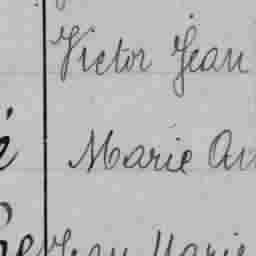 Victor Jean
Marie
Jean Marie